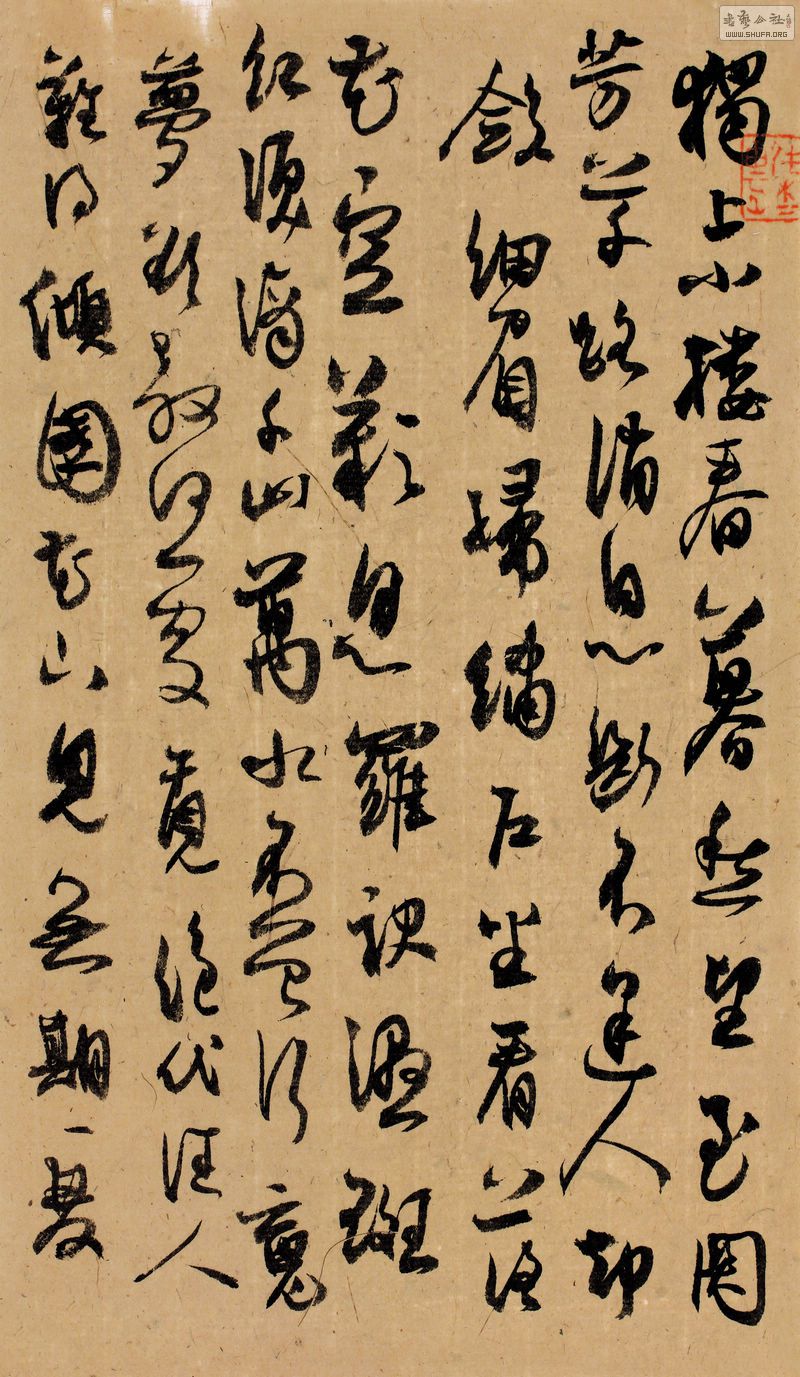 獨上小樓春暮愁望玉關
芳草路消息斷不逢人却
斂細眉歸繡戶坐看落
花空歎息羅袂濕斑
紅淚滴千山萬水不曾行魂
夢欲教何處覓絕代佳人
難得傾國花下見無期一雙
書藝公社
WWW.SHUFA.ORG